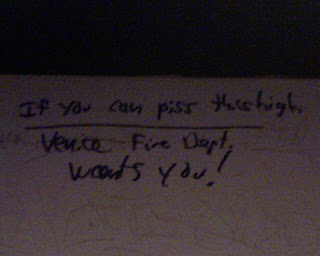 If you can piss this high.
Venice Fire Dept.
wants you!